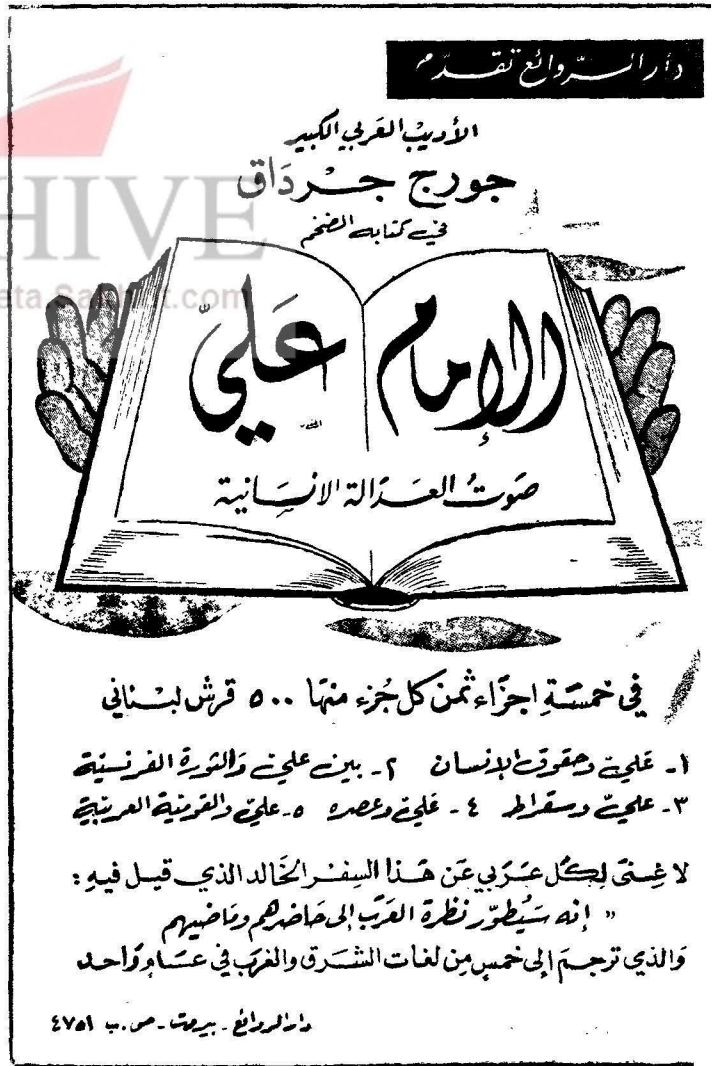 دار الروائع تقدّم
الأديب العربي الكبير
جورج جرداق
في كتابه الضخم
HIVE
ta.Sakhrit.com
الإمام عليّ
صوتُ العدالة الانسانية
في خمسة اجزاء ثمن كل جُزء منها ٥٠٠ قرش لبناني
١- عليّ وحقوق الإنسان ٢- بين عليّ والثورة الفرنسيّة
٣- عليّ وسقراط ٤- عليّ وعصره ٥- عليّ والقوميّة العربيّة
لا غِنى لِكل عَرَبي عَن هَذا السِفر الخَالد الذي قيل فيهِ :
" إنه سَيُطوّر نظرة العَرَب إلى حَاضرهم ومَاضيهم
وَالذي ترجم إلى خمسٍ مِن لغات الشرق والغرب في عَام وَاحد
دار الروائع - بيروت - ص.ب ٤٧٥١